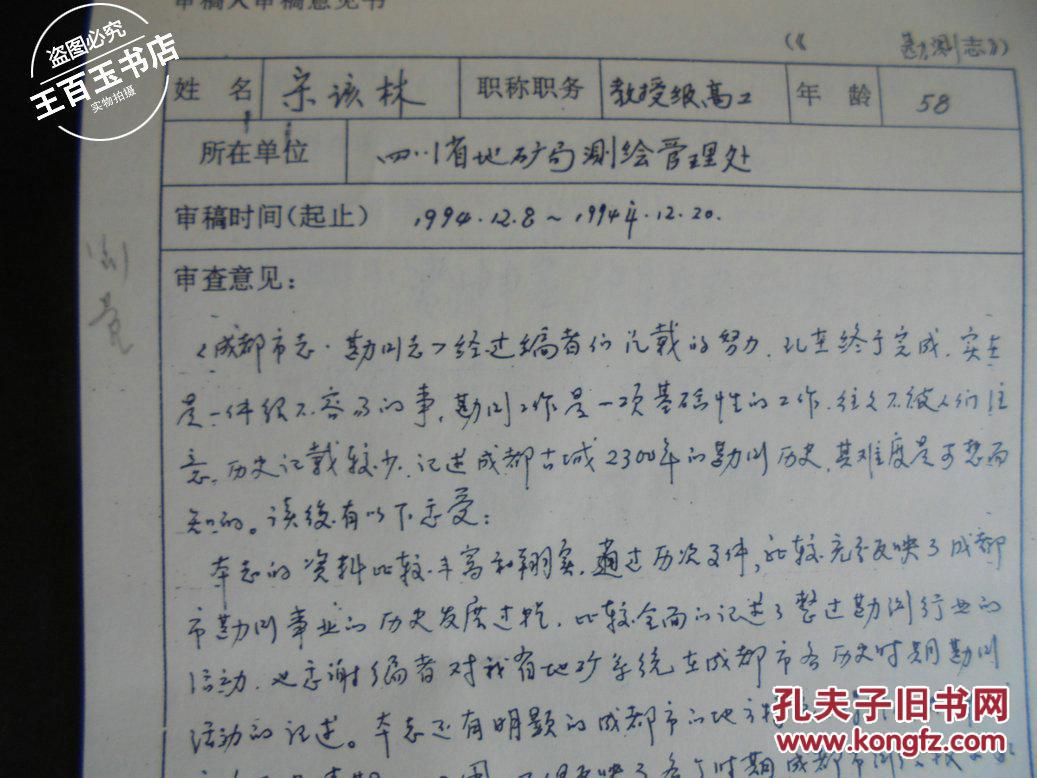 审稿人审稿意见书
(《 勘测志》)
姓 名 宋该林 职称职务 教授级高工 年 龄 58
所在单位 四川省地矿局测绘管理处
审稿时间(起止) 1994.12.8~1994年.12.20.
审查意见:
《成都市志·勘测志》经过编者们几载的努力,现在终于完成,实在
是一件很不容易的事,勘测工作是一项基础性的工作,往往不被人们注
意,历史记载较少,记述成都古城2300年的勘测历史,其难度是可想而
知的。读後有以下感受:
本志的资料比较丰富和翔实,通过历次文件,比较充分反映了成都
市勘测事业的历史发展过程,比较全面的记述了整过勘测行业的
活动,也感谢编者对我省地矿系统在成都市各历史时期勘测
活动的记述。本志还有明显的成都市的地方
反映了各个时期成都市
盗图必究
王百玉书店
实物拍摄
孔夫子旧书网
www.kongfz.com